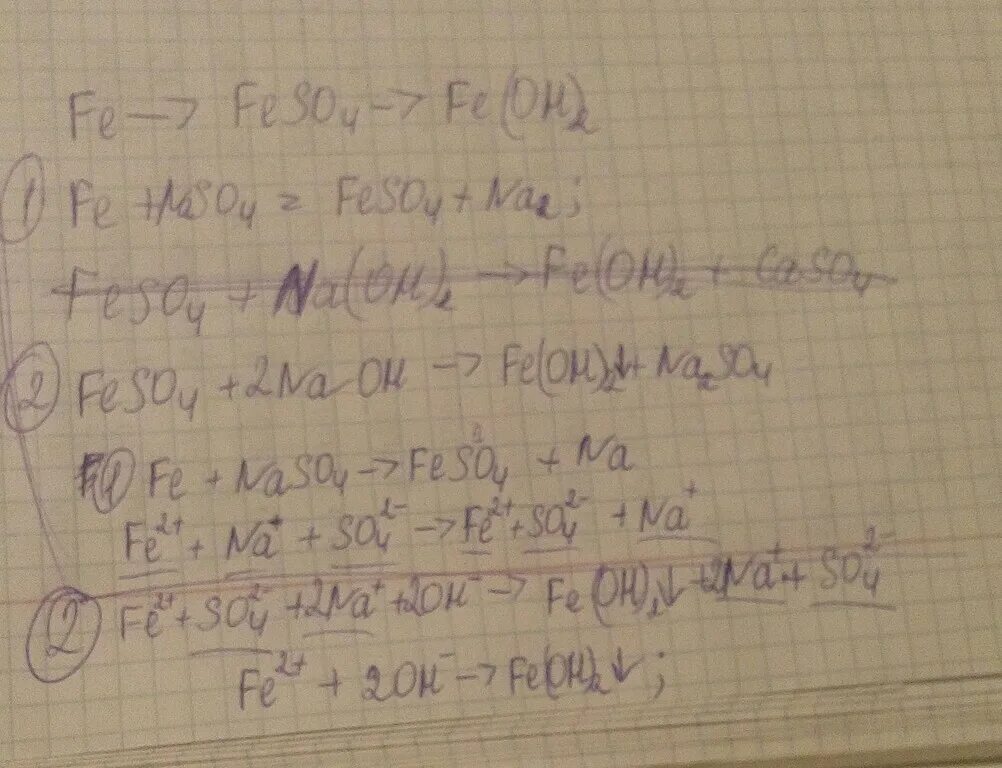 Fe —> FeSO₄ —> Fe(OH)₂
① Fe + NaSO₄ = FeSO₄ + Na₂;
FeSO₄ + Na(OH)₂ —> Fe(OH)₂ + CaSO₄
② FeSO₄ + 2NaOH —> Fe(OH)₂↓ + Na₂SO₄
① Fe + NaSO₄ —> FeSO₄ + Na
Fe²⁺ + Na⁺ + SO₄²⁻ —> Fe²⁺ + SO₄²⁻ + Na⁺
② Fe²⁺ + SO₄²⁻ + 2Na⁺ + 2OH⁻ —> Fe(OH)₂↓ + 2Na⁺ + SO₄²⁻
Fe²⁺ + 2OH⁻ —> Fe(OH)₂↓;